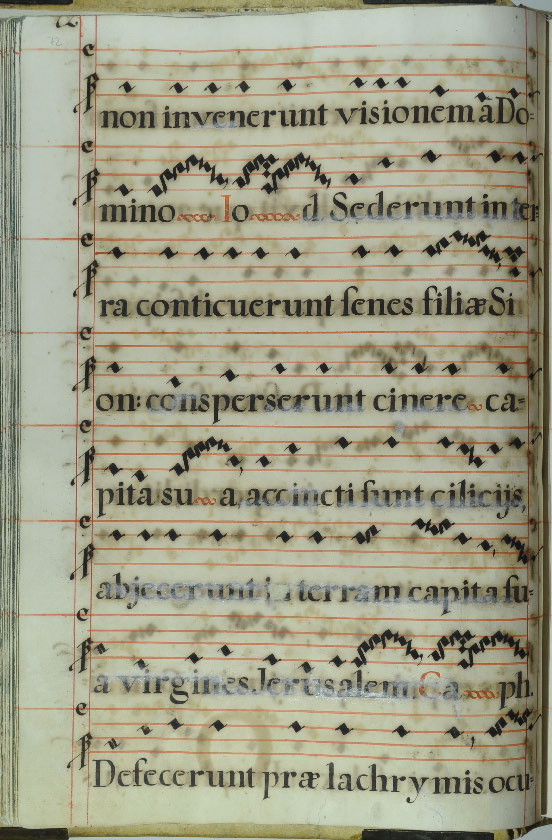 72
non invenerunt visionem â Do=
mino Io d Sederunt in ter
ra conticuerunt senes filiæ Si
on: consperserunt cinere ca=
pita su a, accincti sunt cilicijs,
abjecerunt in terram capita su=
a virgines Jerusalem. Ca ph.
Defecerunt præ lachrymis ocu=